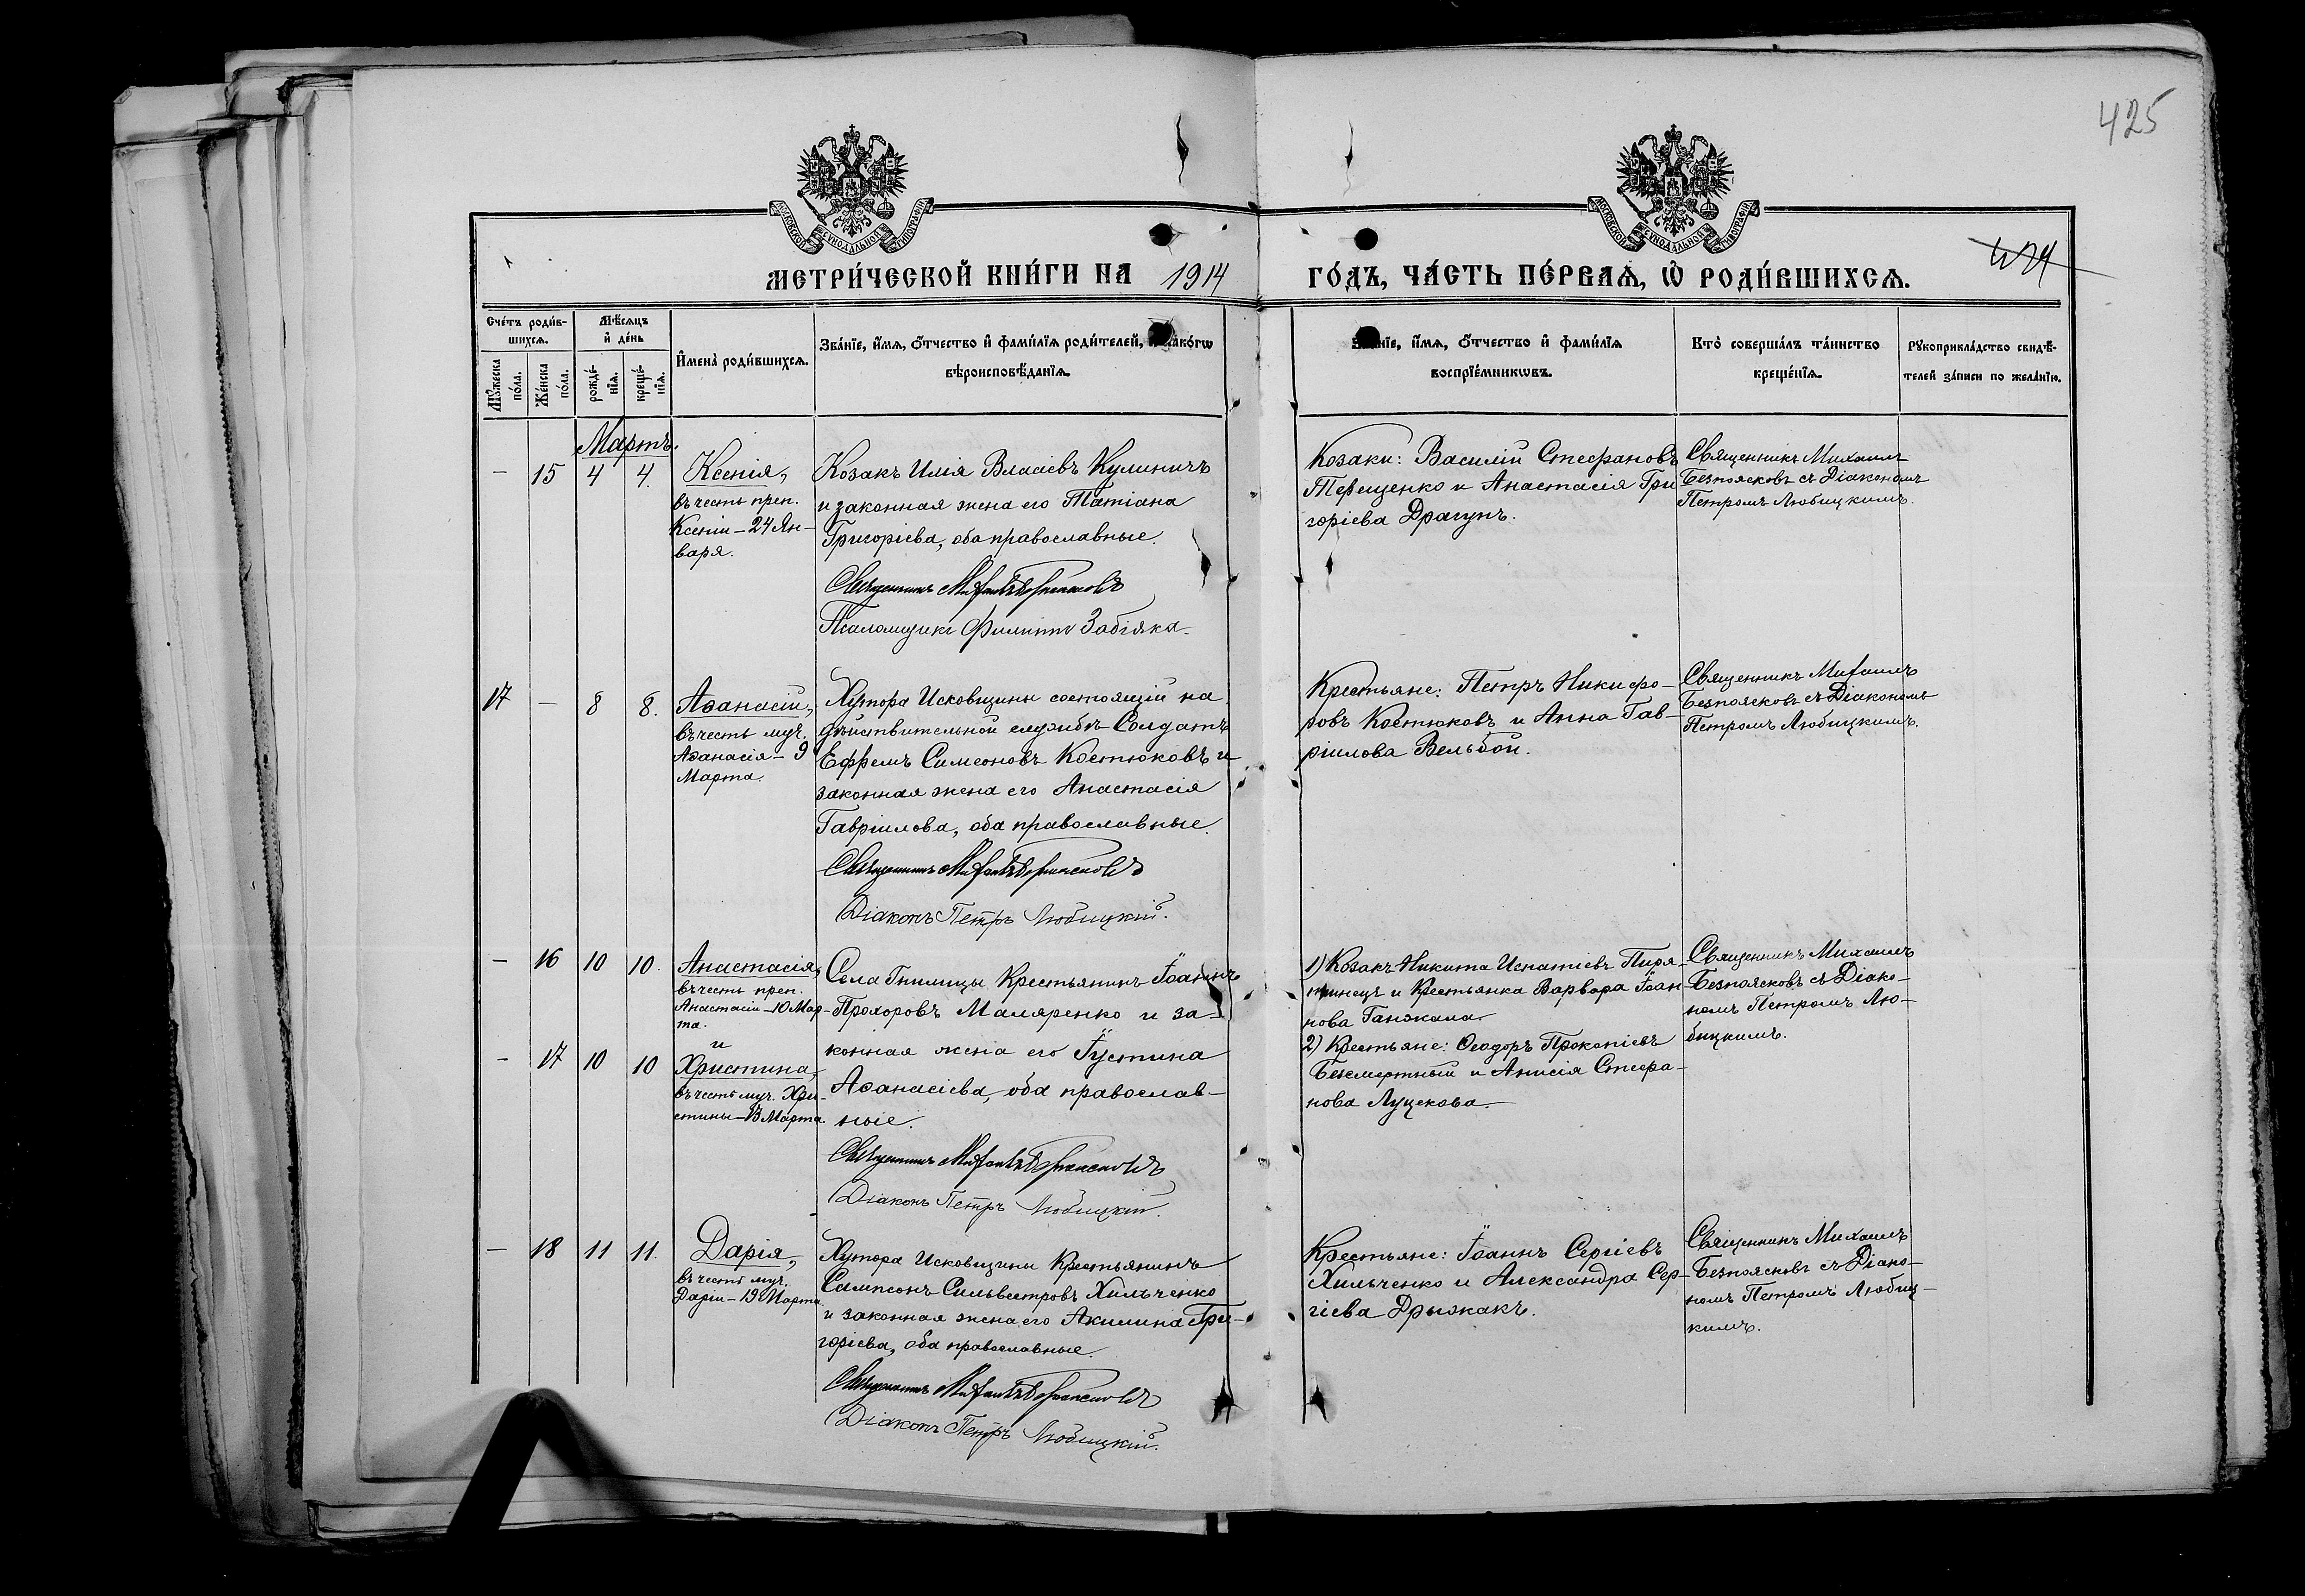 425
МОСКОВСКОЙ СѴНОДАЛЬНОЙ ТИПОГРАФІИ
МОСКОВСКОЙ СѴНОДАЛЬНОЙ ТИПОГРАФІИ
МЕТРИ́ЧЕСКОЙ КНИ́ГИ НА 1914
ГО́ДЪ, ЧА́СТЬ ПЕ́РВАѦ, Ѡ҆ РОДИ́ВШИХСѦ.
Сче́тъ роди́в-
шихсѧ.
Мѣ́сѧцъ
и҆ де́нь
Мꙋ́жеска
по́ла.
Же́нска
по́ла.
рожде́-
нїѧ.
креще́-
нїѧ.
И҆мена̀ роди́вшихсѧ.
Зва́нїе, и҆́мѧ, ѻ҆́тчество и҆ фами́лїѧ роди́телей, и҆ како́гѡ
вѣроисповѣ́данїѧ.
Зва́нїе, и҆́мѧ, ѻ҆́тчество и҆ фами́лїѧ
воспрїе́мникѡвъ.
Кто̀ соверша́лъ та́инство
креще́нїѧ.
Рꙋкоприкла́дство свидѣ́-
телей за́писи по жела́нїю.
Мартъ.
— 15 4 4.
Ксенія,
въ честь преп.
Ксеніи – 24 Ян-
варя.
Козакъ Илія Власіевъ Кулиничъ
и законная жена его Татіана
Григоріева, оба православные.
Священникъ Михаилъ Безпоясковъ
Псаломщикъ Филиппъ Забіяка
Козаки: Василій Стефановъ
Терещенко и Анастасія Гри
горіева Драгунъ.
Священникъ Михаилъ
Безпоясковъ съ Діакономъ
Петромъ Любицкимъ.
17 — 8 8.
Аѳанасій,
въ честь муч.
Аѳанасія – 9
Марта.
Хутора Исковщины состоящій на
дѣйствительной службѣ Солдатъ
Ефремъ Симеоновъ Костюковъ и
законная жена его Анастасія
Гавріилова, оба православные.
Священникъ Михаилъ Безпоясковъ
Діаконъ Петръ Любицкій.
Крестьяне: Петръ Никифо-
ровъ Костюковъ и Анна Гав-
ріилова Вельбой.
Священникъ Михаилъ
Безпоясковъ съ Діакономъ
Петромъ Любицкимъ.
— 16 10 10.
Анастасія,
въ честь преп.
Анастасіи – 10 Мар-
та.
и
— 17 10 10
Христина,
въ честь муч. Хри-
стины – 13 Марта
Села Гнилицы Крестьянинъ Іоаннъ
Прохоровъ Маляренко и за-
конная жена его Іустина
Аѳанасіева, оба православ-
ные.
Священникъ Михаилъ Безпоясковъ
Діаконъ Петръ Любицкій.
1) Козакъ Никита Игнатіевъ Пиря-
тинецъ и Крестьянка Варвара Іоан
нова Ганжала
2) Крестьяне: Ѳеодоръ Прокопіевъ
Безсмертный и Анисія Стефа-
нова Луценова.
Священникъ Михаилъ
Безпоясковъ съ Діако-
номъ Петромъ Лю-
бицкимъ.
— 18 11 11.
Дарія,
въ честь муч.
Даріи – 19 Марта
Хутора Исковщины Крестьянинъ
Сампсонъ Сильвестровъ Хильченко
и законная жена его Акилина Гри-
горіева, оба православные.
Священникъ Михаилъ Безпоясковъ
Діаконъ Петръ Любицкій.
Крестьяне: Іоаннъ Сергіевъ
Хильченко и Александра Сер-
гіева Дрыжакъ.
Священникъ Михаилъ
Безпоясковъ съ Діако-
номъ Петромъ Любиц-
кимъ.